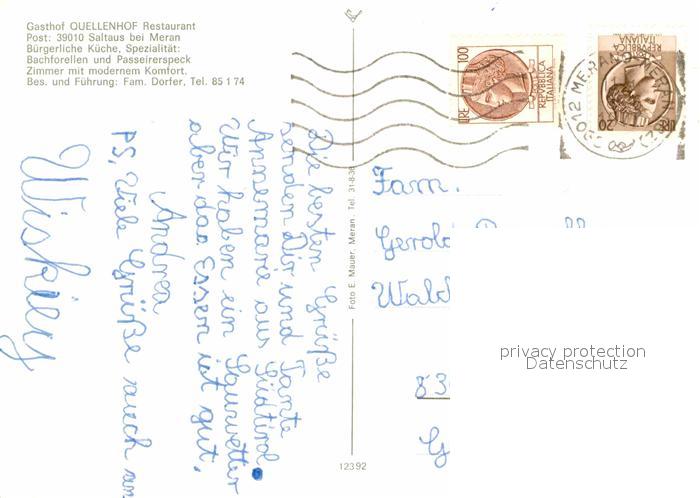 Gasthof QUELLENHOF Restaurant
Post: 39010 Saltaus bei Meran
Bürgerliche Küche, Spezialität:
Bachforellen und Passeirerspeck
Zimmer mit modernem Komfort.
Bes. und Führung: Fam. Dorfer, Tel. 85 1 74
Die besten Grüße
senden Dir und Tante
Annemarie aus Südtirol.
Wir haben ein Sauwetter
aber das Essen ist gut.
Andrea
PS, Viele Grüße auch an
Foto E. Mauer, Meran, Tel. 31-8-36
12392
LIRE 100
REPVBBLICA
ITALIANA
REPVBBLICA
ITALIANA
20
39012 MERANO
Fam.
Gerold
Wald
83
G
privacy protection
Datenschutz